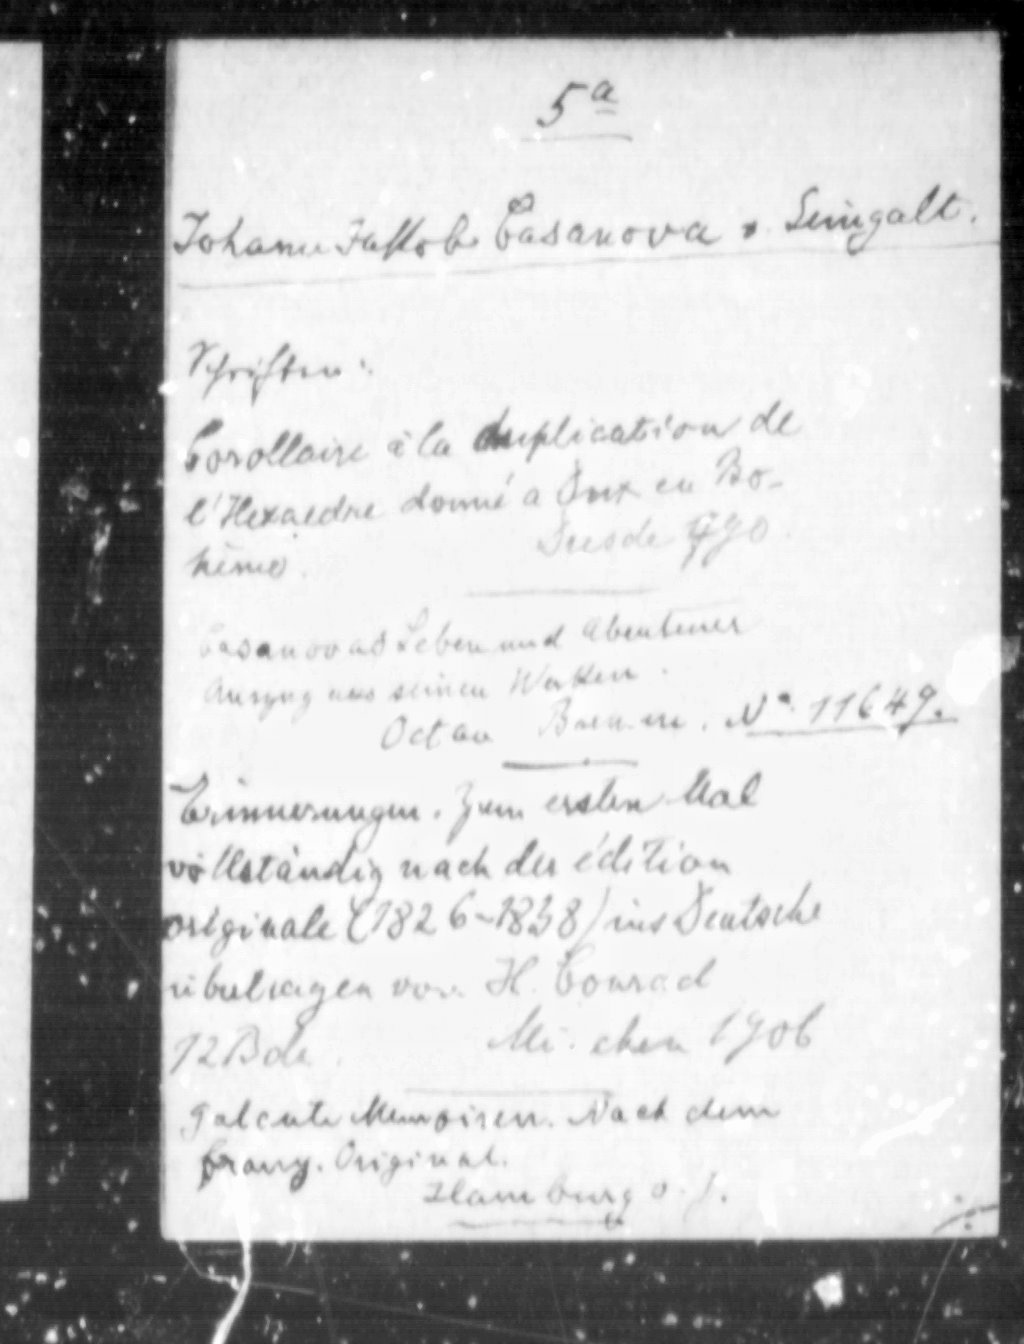 5a
Johann Jakob Casanova v. Seingalt.
Schriften:
Corollaire à la duplication de
l'Hexaedre donné a Dux en Bo-
hême.
Dresde 1790.
Casanovas Leben und Abenteuer
Auszug aus seinen Werken.
Octav No. 11649.
Erinnerungen. Zum ersten Mal
vollständig nach der édition
originale (1826-1838) ins Deutsche
übertragen von H. Conrad
12 Bde. München 1906
Galante Memoiren. Nach dem
franz. Original.
Hamburg o. J.